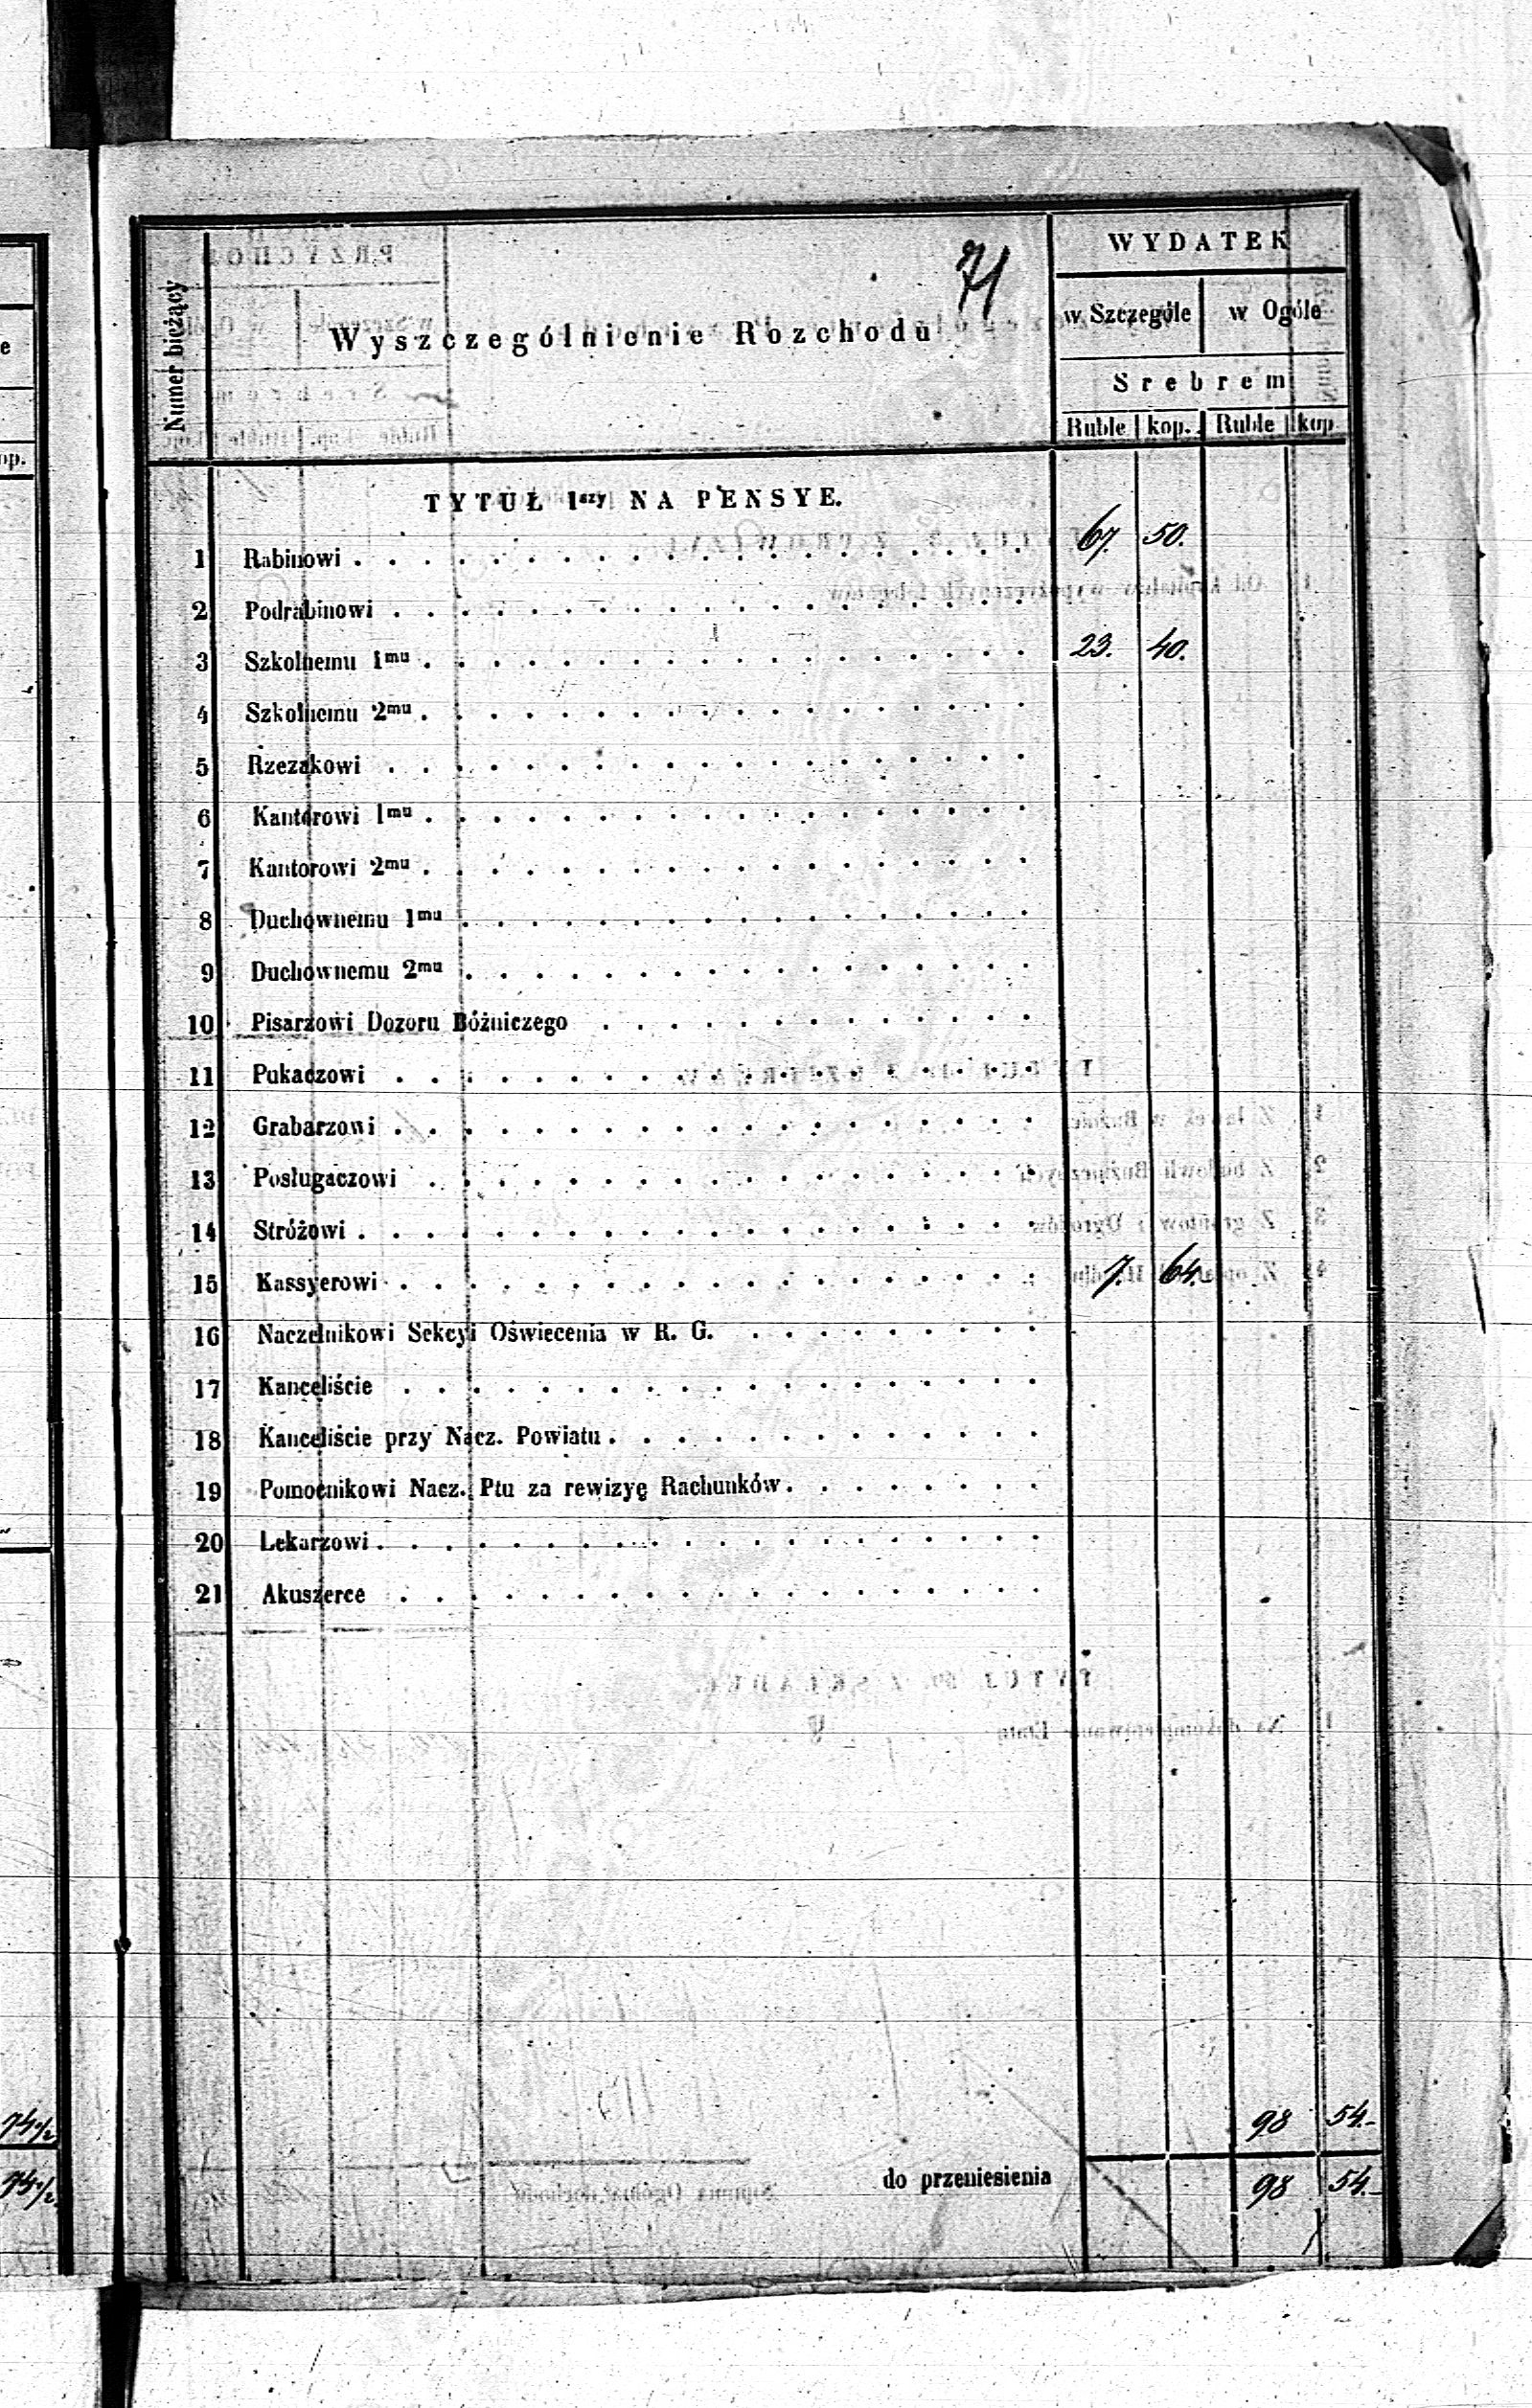 71
Numer bieżący
Wyszczególnienie Rozchodu
WYDATEK
w Szczególe w Ogóle
Srebrem
Ruble kop. Ruble kop
TYTUŁ 1szy NA PENSYE.
1 Rabinowi . . . 67. 50.
2 Podrabinowi . . .
3 Szkolnemu 1mu . . . 23. 40.
4 Szkolnemu 2mu . . .
5 Rzezakowi . . .
6 Kantorowi 1mu . . .
7 Kantorowi 2mu . . .
8 Duchownemu 1mu . . .
9 Duchownemu 2mu . . .
10 Pisarzowi Dozoru Bóżniczego . . .
11 Pukaczowi . . .
12 Grabarzowi . . .
13 Posługaczowi . . .
14 Stróżowi . . .
15 Kassyerowi . . . 7. 64.
16 Naczelnikowi Sekcyi Oświecenia w R. G. . . .
17 Kanceliście . . .
18 Kanceliście przy Nacz. Powiatu . . .
19 Pomocnikowi Nacz. Ptu za rewizyę Rachunków . . .
20 Lekarzowi . . .
21 Akuszerce . . .
98 54.-
do przeniesienia 98 54.-
op.
74½
74½